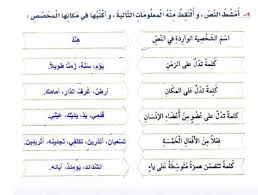 أُمَشِّطُ النَّصَّ، وَ أَلْتَقِطُ مِنْهُ المَعْلُومَاتِ التَّالِيَةَ، وَ أَكْتُبُهَا فِي مَكَانِهَا المُخَصَّصِ:
اسْمُ الشَّخْصِيَّةِ الوَارِدَةِ فِي النَّصِّ
هِنْدُ
كَلِمَةٌ تَدُلُّ عَلَى الزَّمَنِ
يَوْمَ، سَنَةً، زَمَنًا طَوِيلًا.
كَلِمَةٌ تَدُلُّ عَلَى
أَرْضُ، غُرَفُ الدَّارِ، أَمَامَكِ.
كَلِمَةٌ تَدُلُّ عَلَى عُضْوٍ مِنْ أَعْضَاءِ الإِنْسَانِ
قَدَمِي، يَدَ، يَدَيْكِ، عَيْنَيَّ.
فِعْلًا مِنَ الأَفْعَالِ الخَمْسَةِ
تَسْعَيَانِ، تَكْتَفِي، تَجِدِينَهُ، أَتُرِيدِينَ.
كَلِمَةٌ تَتَضَمَّنُ هَمْزَةً مُتَوَسِّطَةً عَلَى يَاءٍ
الشَّدَائِدِ، يَوْمَئِذٍ، آبَائِهِ.